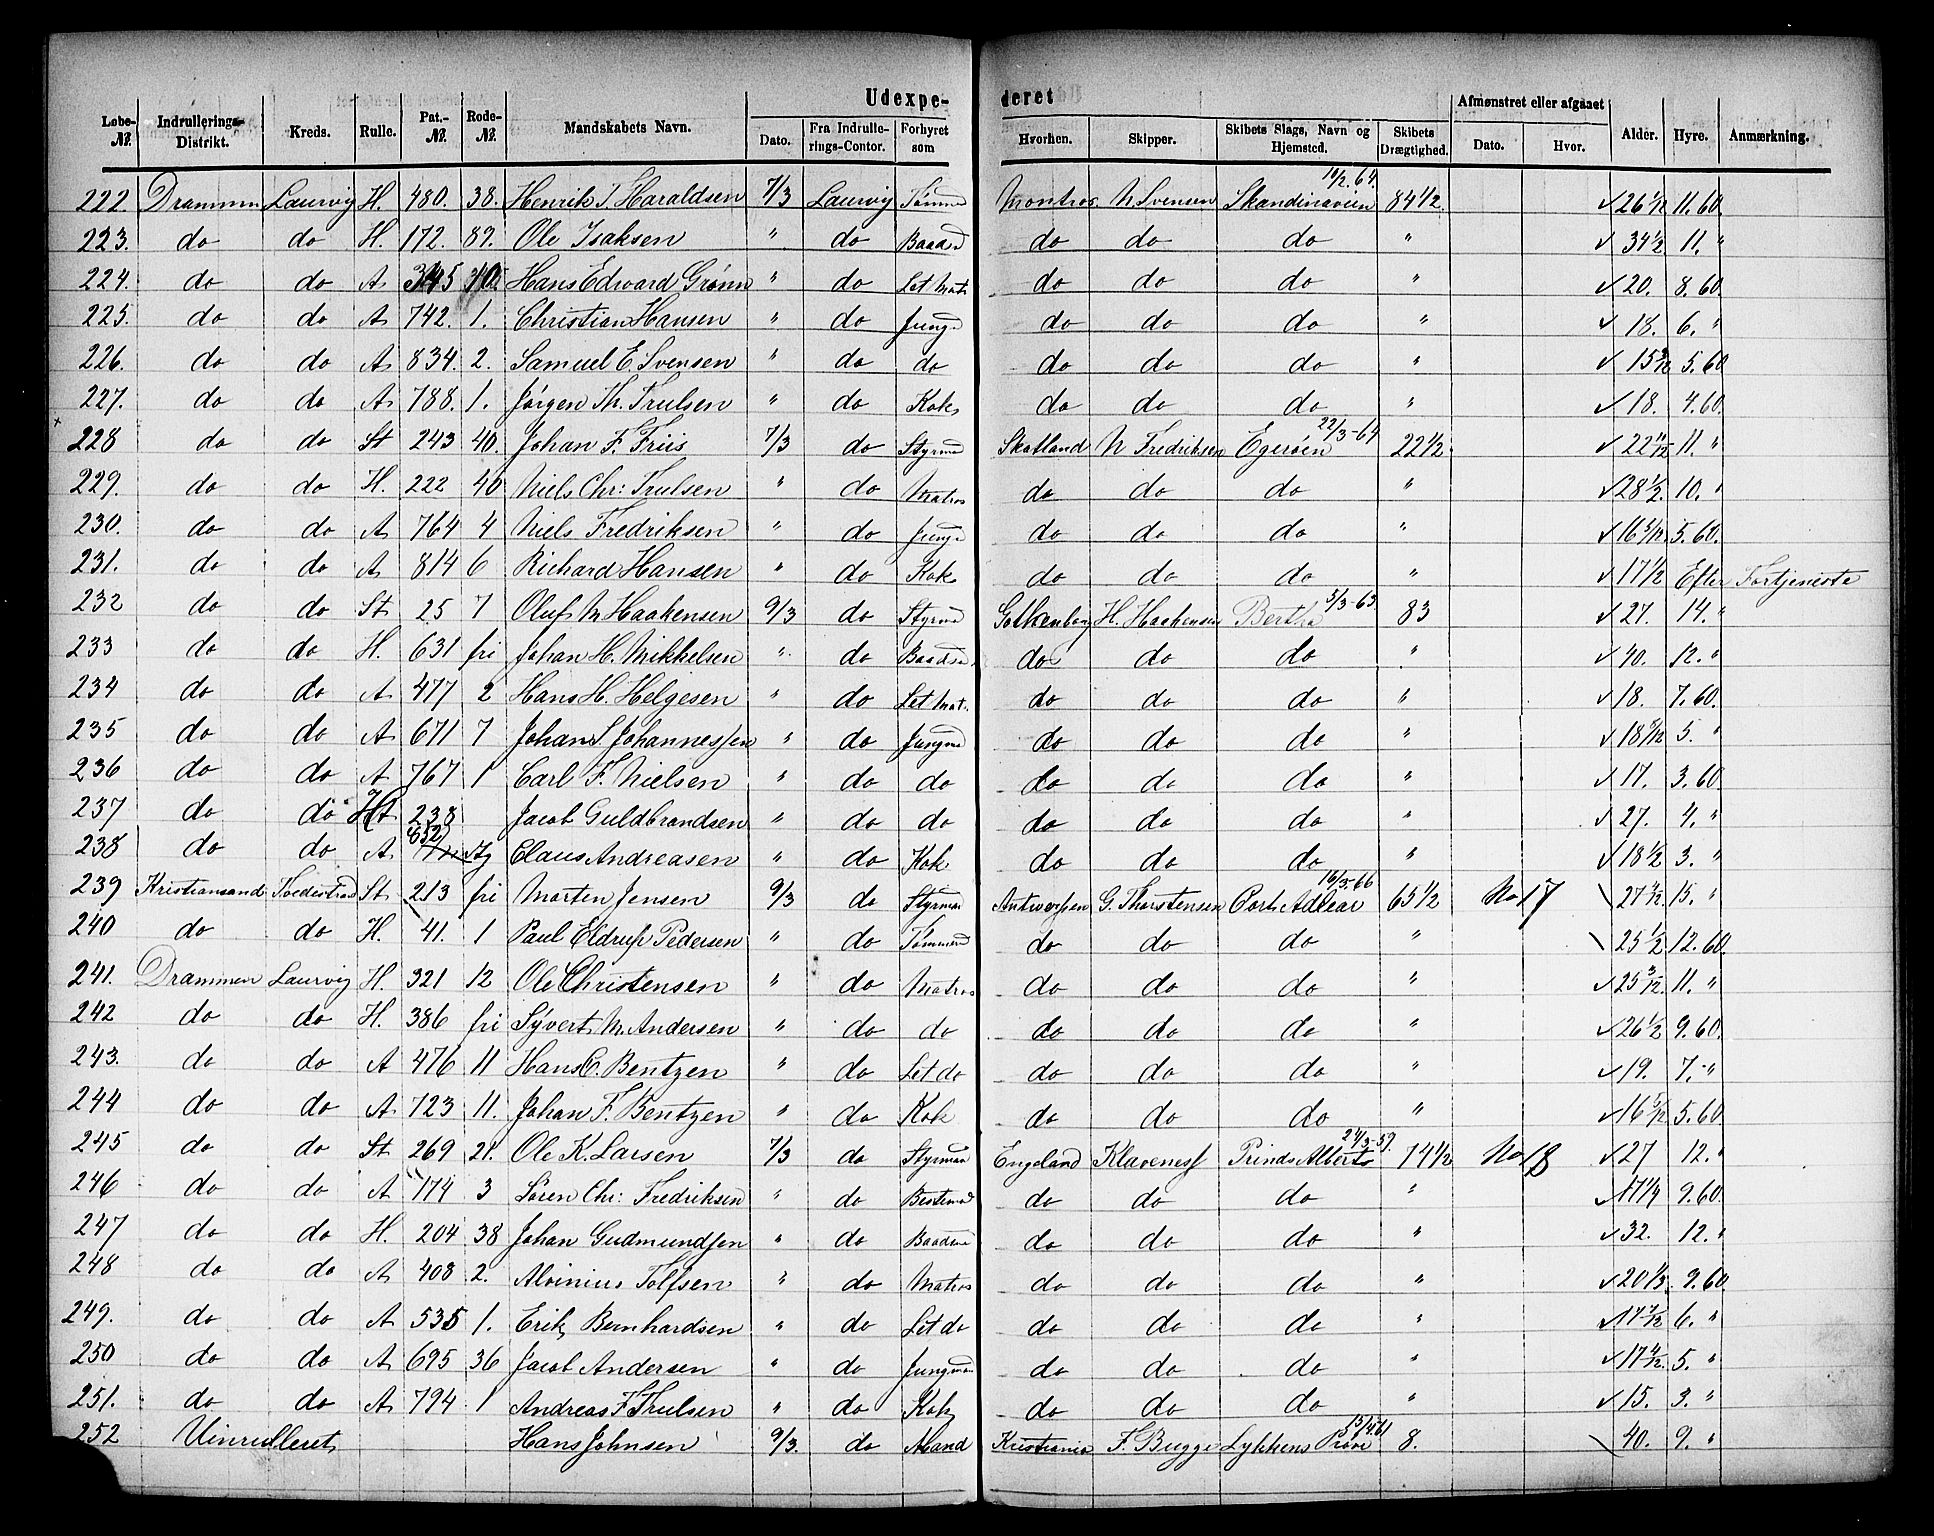 Udexpe- deret
Løbe- No. Indrullerings- Distrikt. Kreds. Rulle. Pat.- No. Rode- No. Mandskabets Navn. Dato. Fra Indrulle- rings-Contor. Forhyret som Hvorhen. Skipper. Skibets Slags, Navn og Hjemsted. Skibets Drægtighed. Afmønstret eller afgaaet Dato. Hvor. Alder. Hyre. Anmærkning.
222. Drammen Laurvig H. 480. 38. Henrik T. Haraldsen 7/3 Laurvig Tømmd Montros. N Svensen Skandinavien 10/2.64. 84 1/2. 26 1/12 11.60.
223. do do H. 172. 89. Ole Isaksen " do Baadsd do do do " 34 1/2 11. "
224. do do A 345 40 Hans Edward Grønn " do Let Mat. do do do " 20. 8.60.
225. do do A 742. 1. Christian Hansen " do Jungd do do do " 18. 6. "
226. do do A 834. 2. Samuel E. Svensen " do do do do do " 15 3/12 5.60
227. do do A 788. 1. Jørgen Th. Trulsen " do Kok do do do " 18. 4.60.
228 do do St 243 40. Johan F. Friis 7/3 do Styrmd Skotland N Fredriksen Egerøen 22/3-64 22 1/2. 22 11/12 11. "
229. do do H. 222 40 Niels Chr: Trulsen " do Matros do do do " 28 1/2. 10. "
230. do do A 764 4 Niels Fredriksen " do Jungd do do do " 16 3/12. 5.60.
231. do do A 814 6 Richard Hansen " do Kok do do do " 17 1/2 Efter Fortjeniste
232 do do St 25 7 Oluf M Haakensen 9/3 do Styrmd Gothenborg H. Haakensen Bertha 3/3-63. 83 27. 14. "
233 do do H. 631 fri Johan H. Mikkelsen " do Baadsm do do do " 40. 12. "
234 do do A 477 2 Hans H. Helgesen " do Let Mat. do do do " 18. 7.60.
235 do do A 671 7 Johan S Johannessen " do Jungmd do do do " 18 8/12 5. "
236 do do A 767 1 Carl F. Nielsen " do do do do do " 17. 3.60
237 do do 238 Jacob Guldbrandsen " do do do do do " 27. 4. "
238 do do A 652 Claus Andreasen " do Kok do do do " 18 1/2 3. "
239 Kristiansand Tvedestrand St 213 fri Morten Jensen 9/3 do Styrman Antwerpen G. Thorstensen Cort Adlear 16/3-66 65 1/2 No 17 27 4/12 15. "
240 do do H. 41. 1 Paul Eldrup Pedersen " do Tømmermd do do do " 25 1/2 12.60.
241. Drammen Laurvig H. 321 12 Ole Christensen " do Matros do do do " 25 3/12. 11. "
242 do do H. 386 fri Syvert M. Andersen " do do do do do " 26 1/2 9.60.
243. do do A 476 11 Hans C. Bentzen " do Let do do do do " 19. 7. "
244 do do A 723 11. Johan F. Bentzen " do Kok do do do " 16 5/12 5.60.
245 do do St 269 21. Ole K. Larsen 7/3 do Styrman Engeland Klaveness Prinds Alberts 24/3-59. 74 1/2 No 18 27 12. "
246 do do A 174 3 Søren Chr: Fredriksen " do Bestmd do do do " 17 1/4 9.60.
247 do do H. 204 38 Johan Gudmundsen " do Baadsmd do do do " 32. 12. "
248 do do A 408 2. Aloinius Tolfsen " do Matros do do do " 20 1/3. 9.60.
249. do do A 535 1. Erik Bernhardsen " do Let do do do do " 17 7/12 6. "
250 do do A 695 36 Jacob Andersen " do Jungman do do do " 17 4/12. 5. "
251. do do A 794 1 Andreas F Trulsen " do Kok do do do " 15. 3. "
252 Uinrulleret Hans Johnsen 9/3. do Mand Kristiania F. Bugge Lykkens Prøve 13/4.61 8. 40. 9. "